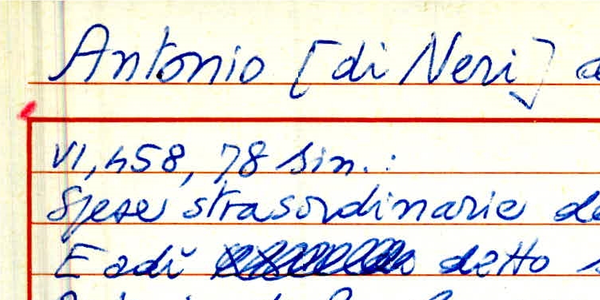 Antonio [di Neri]
VI, 458, 78 sin.:
Spese strasordinarie de
E adì detto